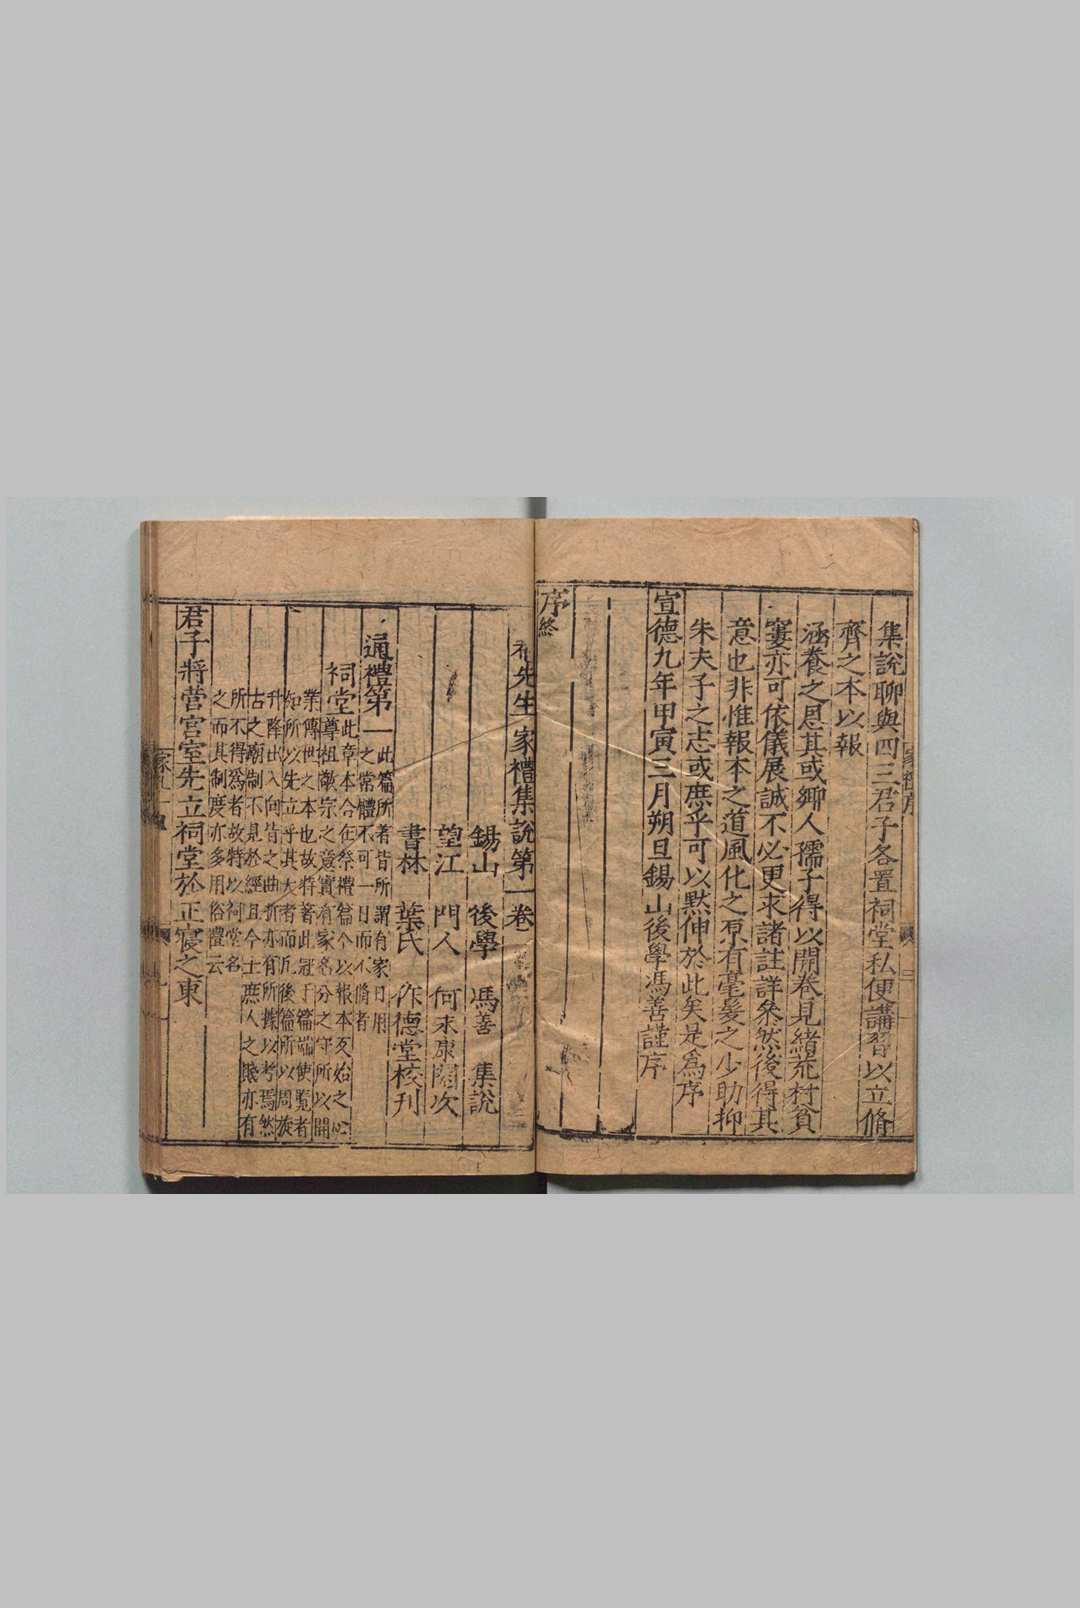 集說聊與四三君子各置祠堂私便講習以立脩
齊之本以報
涵養之恩其或鄉人孺子得以開卷見緒荒村貧
窶亦可依儀展誠不必更求諸註詳叅然後得其
意也非惟報本之道風化之原有毫髮之少助抑
朱夫子之志或庶乎可以默伸於此矣是爲序
宣德九年甲寅三月朔旦錫山後學馮善謹序
序終
先生家禮集說第一卷
錫山 後學 馮善 集說
望江 門人 何永康 閱次
書林 葉氏 作德堂校刊
通禮第一
此篇所著皆所謂有家日用
之常體不可一日而不脩者
祠堂
此章本合在祭禮篇今以報本反始之心
尊祖敬宗之意實有家名分之守所以開
業傳世之本也故特著此冠于篇端使覽者
知所以先立乎其大者而凡後篇所以周旋
升降出入向背之曲折亦有所據以考焉然
古之廟制不見於經且今士庶人之賤亦有
所不得爲者故特以祠堂名
之而其制度亦多用俗禮云
君子將營宮室先立祠堂於正寢之東